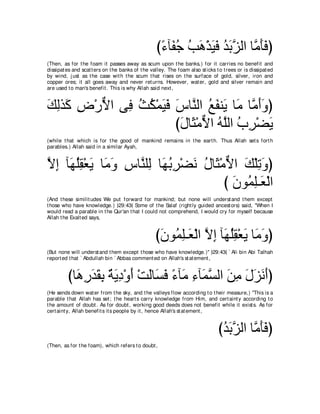 (فَأَمَّا الزَّبَدُ فَيَذْهَبُ جُفَآءً)
(Then, as for the foam it passes away as scum upon the banks,) for it carries no benefit and
dissipates and scatters on the banks of the valley. The foam also sticks to trees or is dissipated
by wind, just as the case with the scum that rises on the surface of gold, silver, iron and
copper ores; it all goes away and never returns. However, water, gold and silver remain and
are used to man's benefit. This is why Allah said next,
(وَأَمَّا مَا يَنفَعُ النَّاسَ فَيَمْكُثُ فِى الاٌّرْضِ كَذَلِكَ
يَضْرِبُ اللَّهُ الاٌّمْثَالَ)
(while that which is for the good of mankind remains in the earth. Thus Allah sets forth
parables.) Allah said in a similar Ayah,
(وَتِلْكَ الاٌّمْثَالُ نَضْرِبُهَا لِلنَّاسِ وَمَا يَعْقِلُهَآ إِلاَّ
الْعَـلِمُونَ )
(And these similitudes We put forward for mankind; but none will understand them except
those who have knowledge.) (29:43) Some of the Salaf (rightly guided ancestors) said, "When I
would read a parable in the Qur'an that I could not comprehend, I would cry for myself because
Allah the Exalted says,
(وَمَا يَعْقِلُهَآ إِلاَّ الْعَـلِمُونَ)
(But none will understand them except those who have knowledge.)" (29:43) `Ali bin Abi Talhah
reported that `Abdullah bin `Abbas commented on Allah's statement,
(أَنَزَلَ مِنَ السَّمَآءِ مَآءً فَسَالَتْ أَوْدِيَةٌ بِقَدَرِهَا)
(He sends down water from the sky, and the valleys flow according to their measure,) "This is a
parable that Allah has set; the hearts carry knowledge from Him, and certainty according to
the amount of doubt. As for doubt, working good deeds does not benefit while it exists. As for
certainty, Allah benefits its people by it, hence Allah's statement,
(فَأَمَّا الزَّبَدُ)
(Then, as for the foam), which refers to doubt,